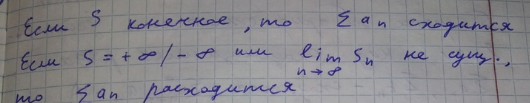 Если S конечное, то Σ an сходится
Если S = + ∞ / - ∞ или lim Sn не сущ.,
n→∞
то Σ an расходится